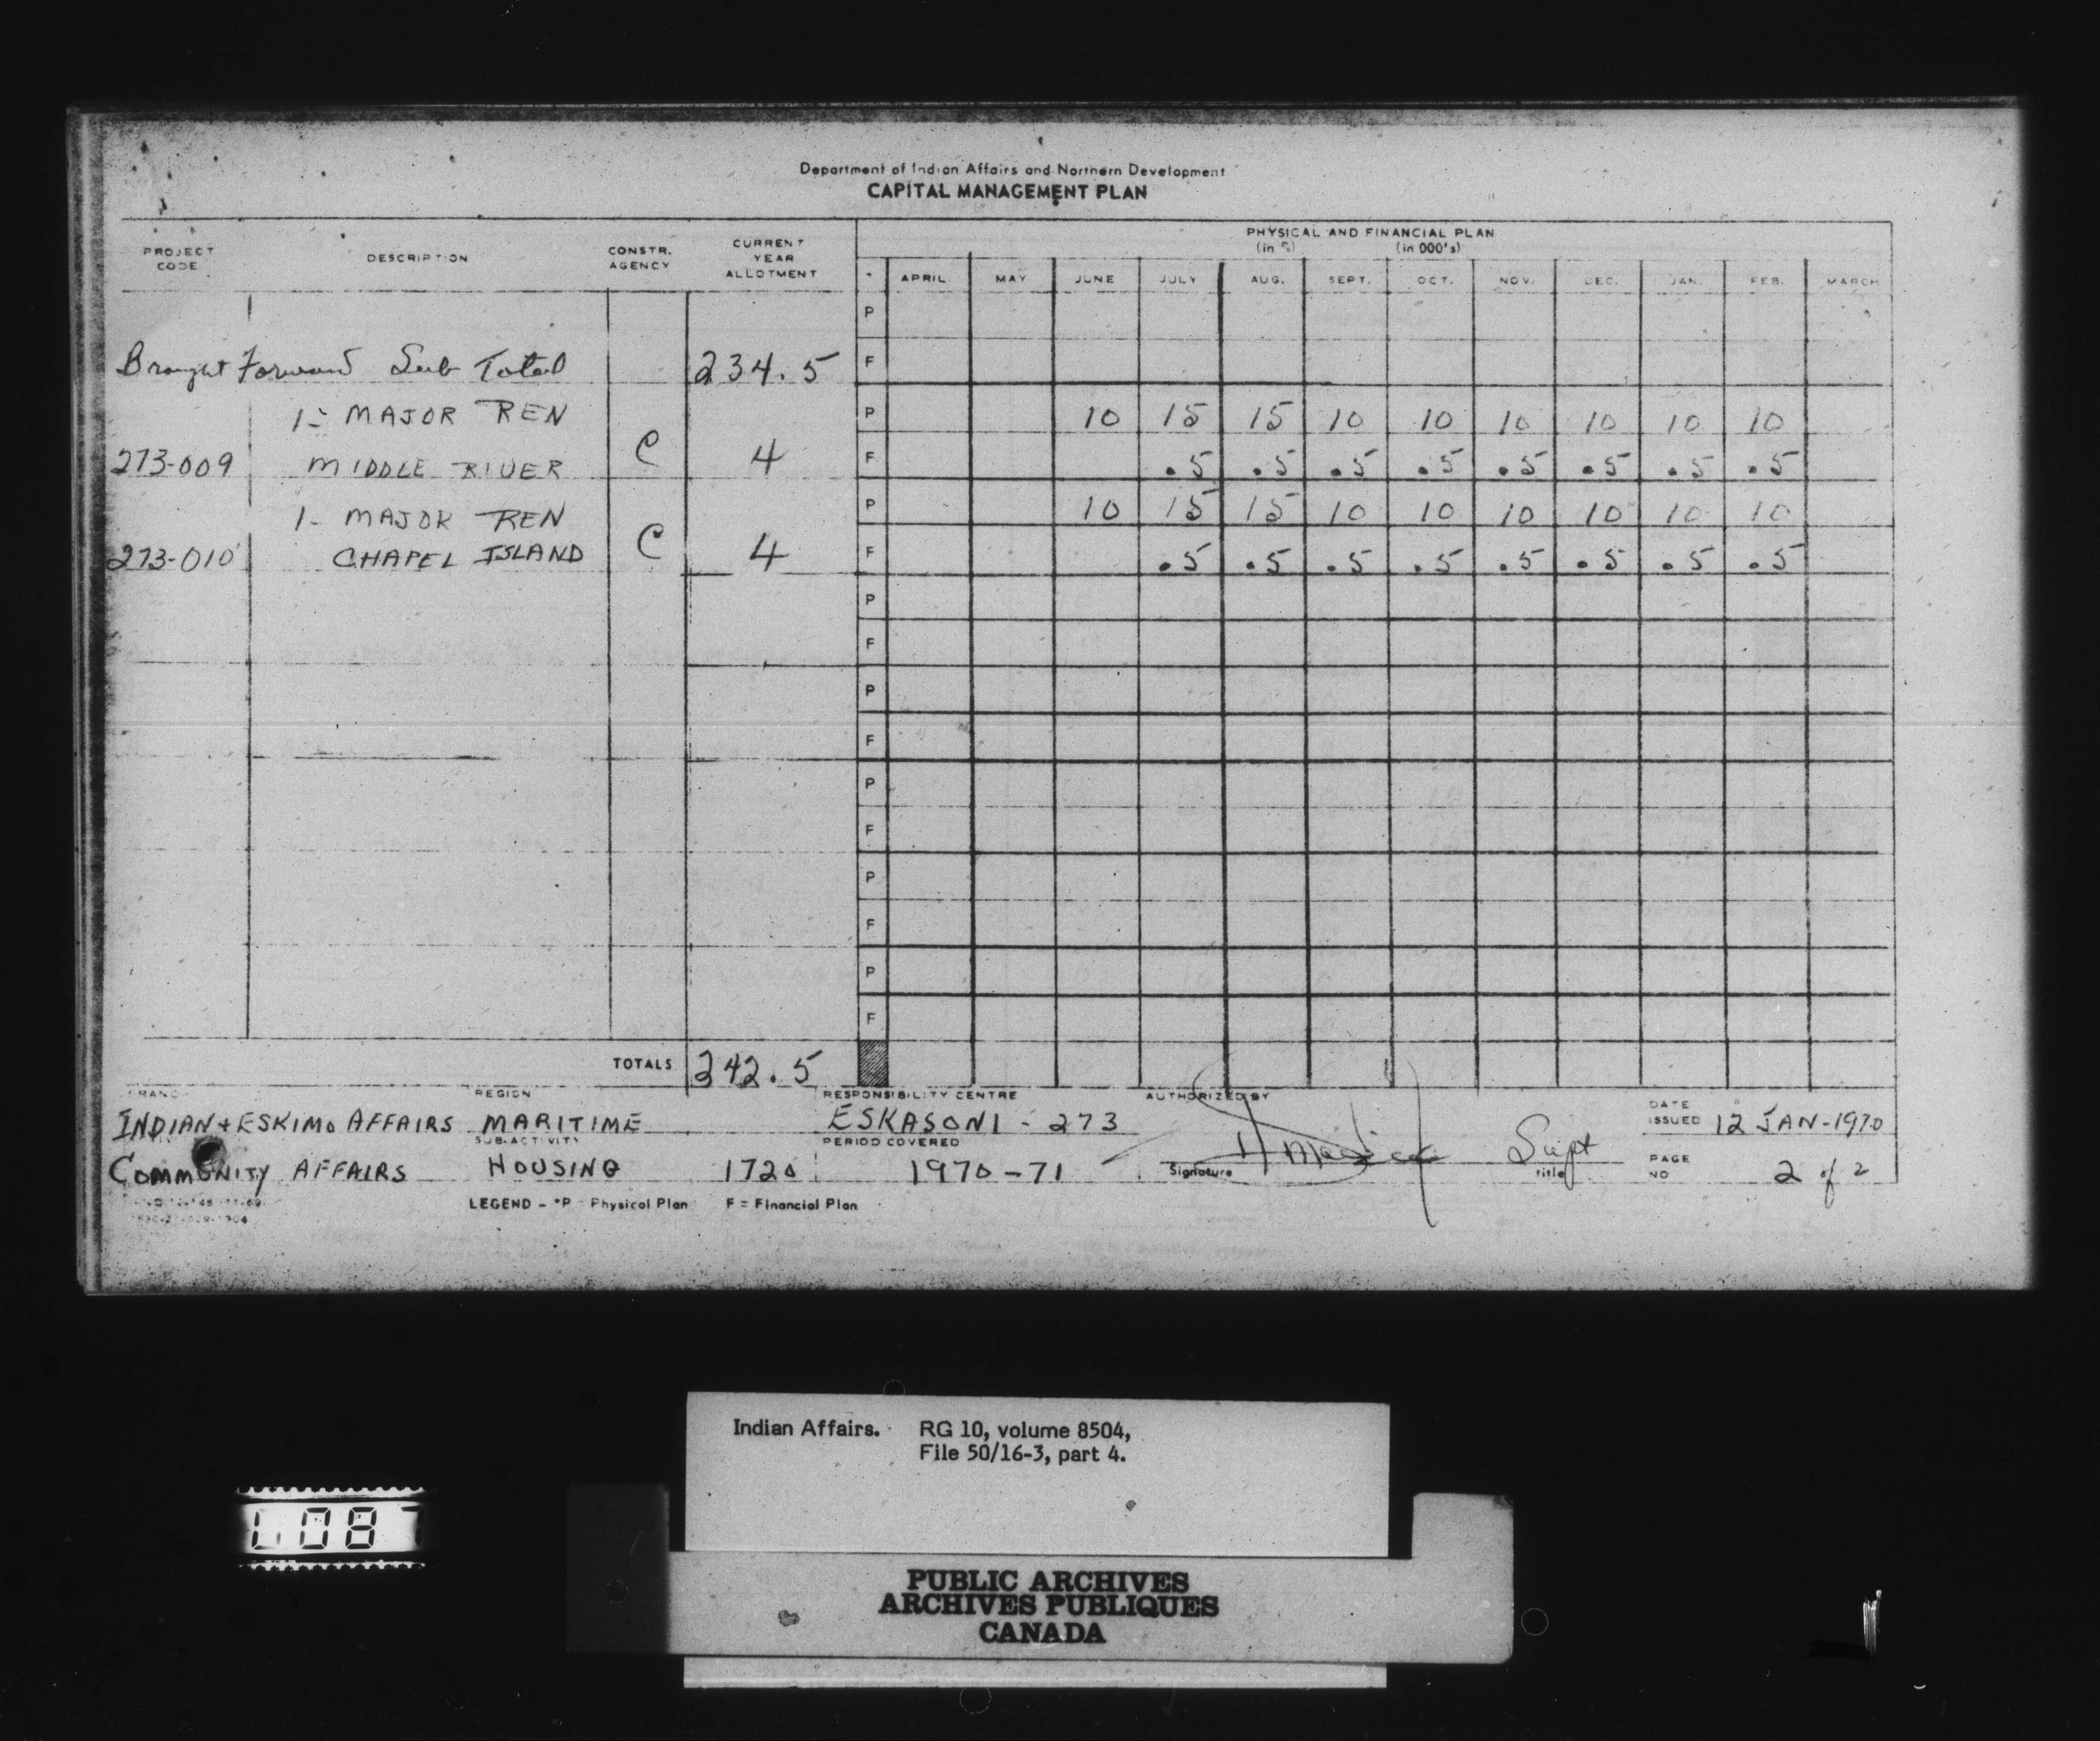 Department of Indian Affairs and Northern Development
CAPITAL MANAGEMENT PLAN
PROJECT CODE DESCRIPTION CONSTR. AGENCY CURRENT YEAR ALLOTMENT PHYSICAL AND FINANCIAL PLAN
(in %) (in 000's)
* APRIL MAY JUNE JULY AUG. SEPT. OCT. NOV. DEC. JAN. FEB. MARCH
P
Brought Forward Sub Total 234.5 F
1- MAJOR REN P 10 15 15 10 10 10 10 10 10
273-009 MIDDLE RIVER C 4 F .5 .5 .5 .5 .5 .5 .5 .5
1- MAJOR REN P 10 15 15 10 10 10 10 10 10
273-010 CHAPEL ISLAND C 4 F .5 .5 .5 .5 .5 .5 .5 .5
P
F
P
F
P
F
P
F
P
F
TOTALS 242.5
REGION RESPONSIBILITY CENTRE AUTHORIZED BY DATE ISSUED 12 JAN-1970
INDIAN + ESKIMO AFFAIRS MARITIME ESKASONI - 273
SUB-ACTIVITY PERIOD COVERED
COMMUNITY AFFAIRS HOUSING 1720 1970-71 Signature Supt title PAGE NO 2 of 2
LEGEND - *P - Physical Plan F = Financial Plan
Indian Affairs. RG 10, volume 8504,
File 50/16-3, part 4.
PUBLIC ARCHIVES
ARCHIVES PUBLIQUES
CANADA